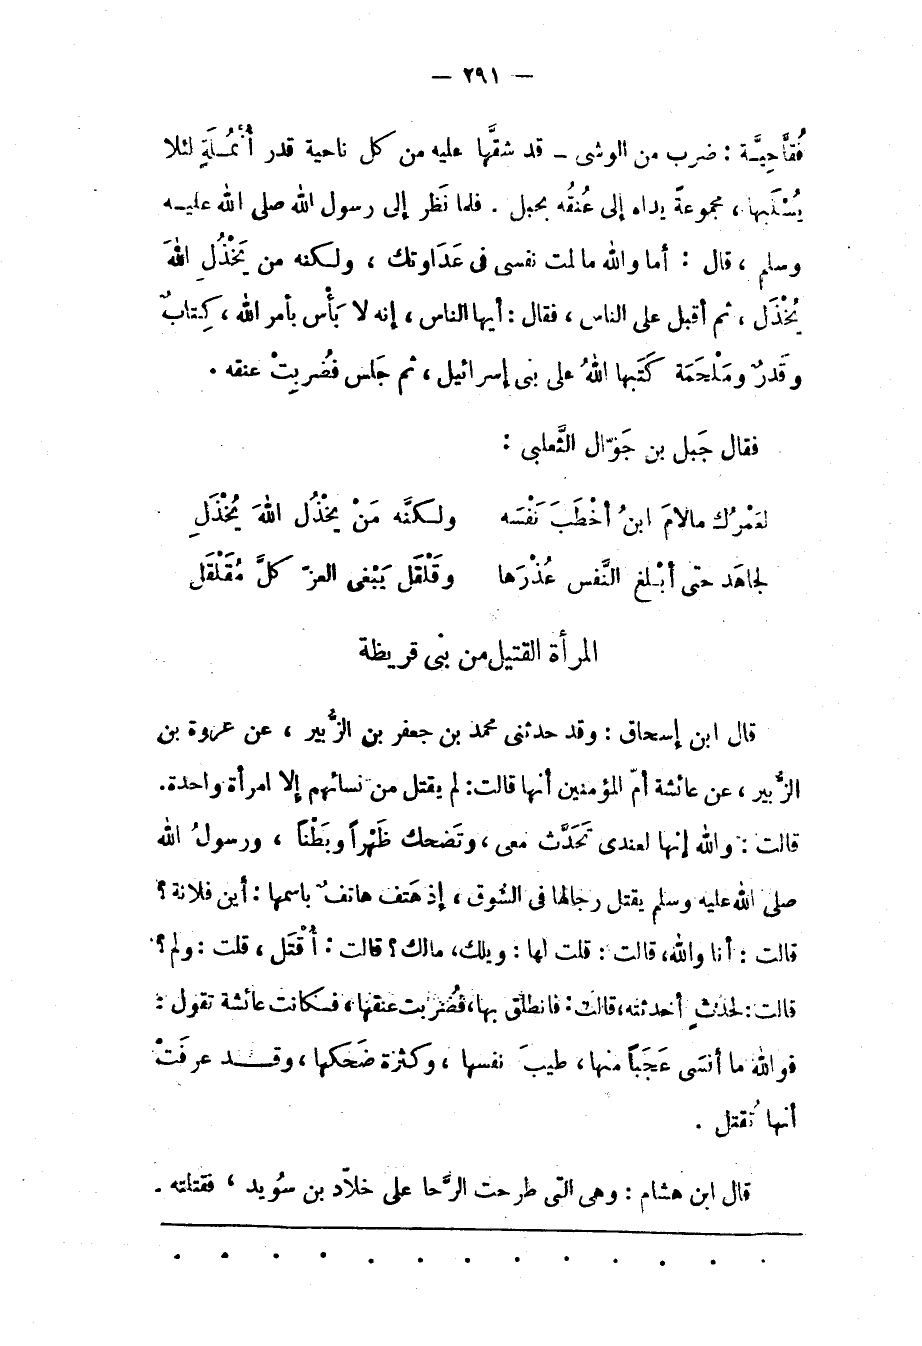 — ٢٩١ —
فُقَّاحِيَّة : ضرب من الوشى – قد شقَّها عليه من كل ناحية قدر أُنْمُـلَةٍ لئلا
يُسْلَبها ، مجموعةً يداه إلى عُنقُه بحبل . فلما نَظر إلى رسول الله صلى الله عليـه
وسلم ، قال : أما والله ما لمت نفسى فى عَدَاوتك ، ولـكنه من يَخْذُلِ اللهَ
يُخْذَل ، ثم أقبل على الناس ، فقال : أيها الناس ، إنه لا بَأْس بأمر الله ، كِتابٌ
وقَدرٌ ومَلْحَمَة كَتَبها اللهُ على بنى إسرائيل ، ثم جَلس فضُربِتْ عنقه .
فقال جَبل بن جَوّال الثَّعلبى :
لعَمْرُك مالامَ ابنُ أخْطَبَ نَفْسَه ولـكنَّه مَنْ يَخْذُل اللهَ يُخْذَلِ
لجاهَد حتى أبْـلغ النَّفس عُذْرَها وقَلْقَل يَبْغى العزّ كلَّ مُقَلْقَل
المرأة القتيل من بنى قريظة
قال ابن إسحاق : وقد حدثنى محمد بن جعفر بن الزُّبير ، عن عروة بن
الزُّبير ، عن عائشة أمّ المؤمنين أنها قالت : لم يقتل من نسائهم إلا امرأة واحدة.
قالت : والله إنها لعندى تَحَدَّث معى ، وتَضحك ظَهْراً وبَطْناً ، ورسولُ الله
صلى الله عليه وسلم يقتل رجالها فى السُّوق ، إذ هَتف هاتفٌ باسمها : أين فلانة ؟
قالت : أنا والله، قالت : قلت لها : ويلك، مالك ؟ قالت : أُقْتَل ، قلت : ولم ؟
قالت : لحدَثٍ أحدثته، قالت : فانطلق بها، فضُربت عنقها، فـكانت عائشة تقول :
فوالله ما أنسَى عَجَباً منها، طيبَ نفسها ، وكثرة ضَحكها ، وقـــد عرفَتْ
أنها تُقتل .
قال ابن هشام : وهى التى طرحت الرَّحا على خلاّد بن سُويد ، فقتلته .
. . . . . . . . . . . . .